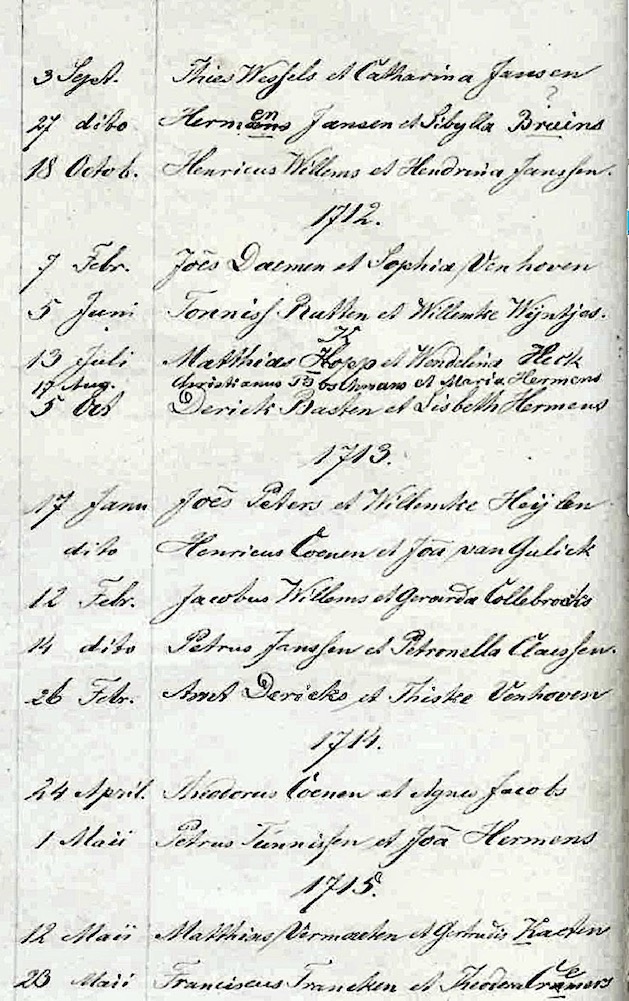 3 Sept. Thies Wessels et Catharina Jansen
?
en
27 dito Hermans Jansen et Sibylla Bruins
18 Octob. Henricus Willems et Hendrina Janssen.
1712.
7 Febr. Joēs Daemen et Sophia Venhoven
5 Juni Tonniss Rutten et Willemke Wijntjes.
K
13 Juli Matthias Hopp et Wendelina Heck
17 Aug. Christianus et Maria Hermens
5 Oct Derick Basten et Lisbeth Hermens
1713.
17 Janu Joēs Peters et Willemke Heijlen
dito Henricus Coenen et Joā van Gulick
12 Febr. Jacobus Willems et Gerarda Collebrocks
14 dito Petrus Janssen et Petronella Claessen.
26 Febr. Arnt Dericks et Thiske Venhoven
1714.
24 April. Theodorus Coenen et Agnes Jacobs
1 Maii Petrus Tunnissen et Joā Hermens
1715.
12 Maii Matthias Vermaeten et Gertrudis Kaeten
e
23 Maii Franciscus Francken et Theodora Cramers